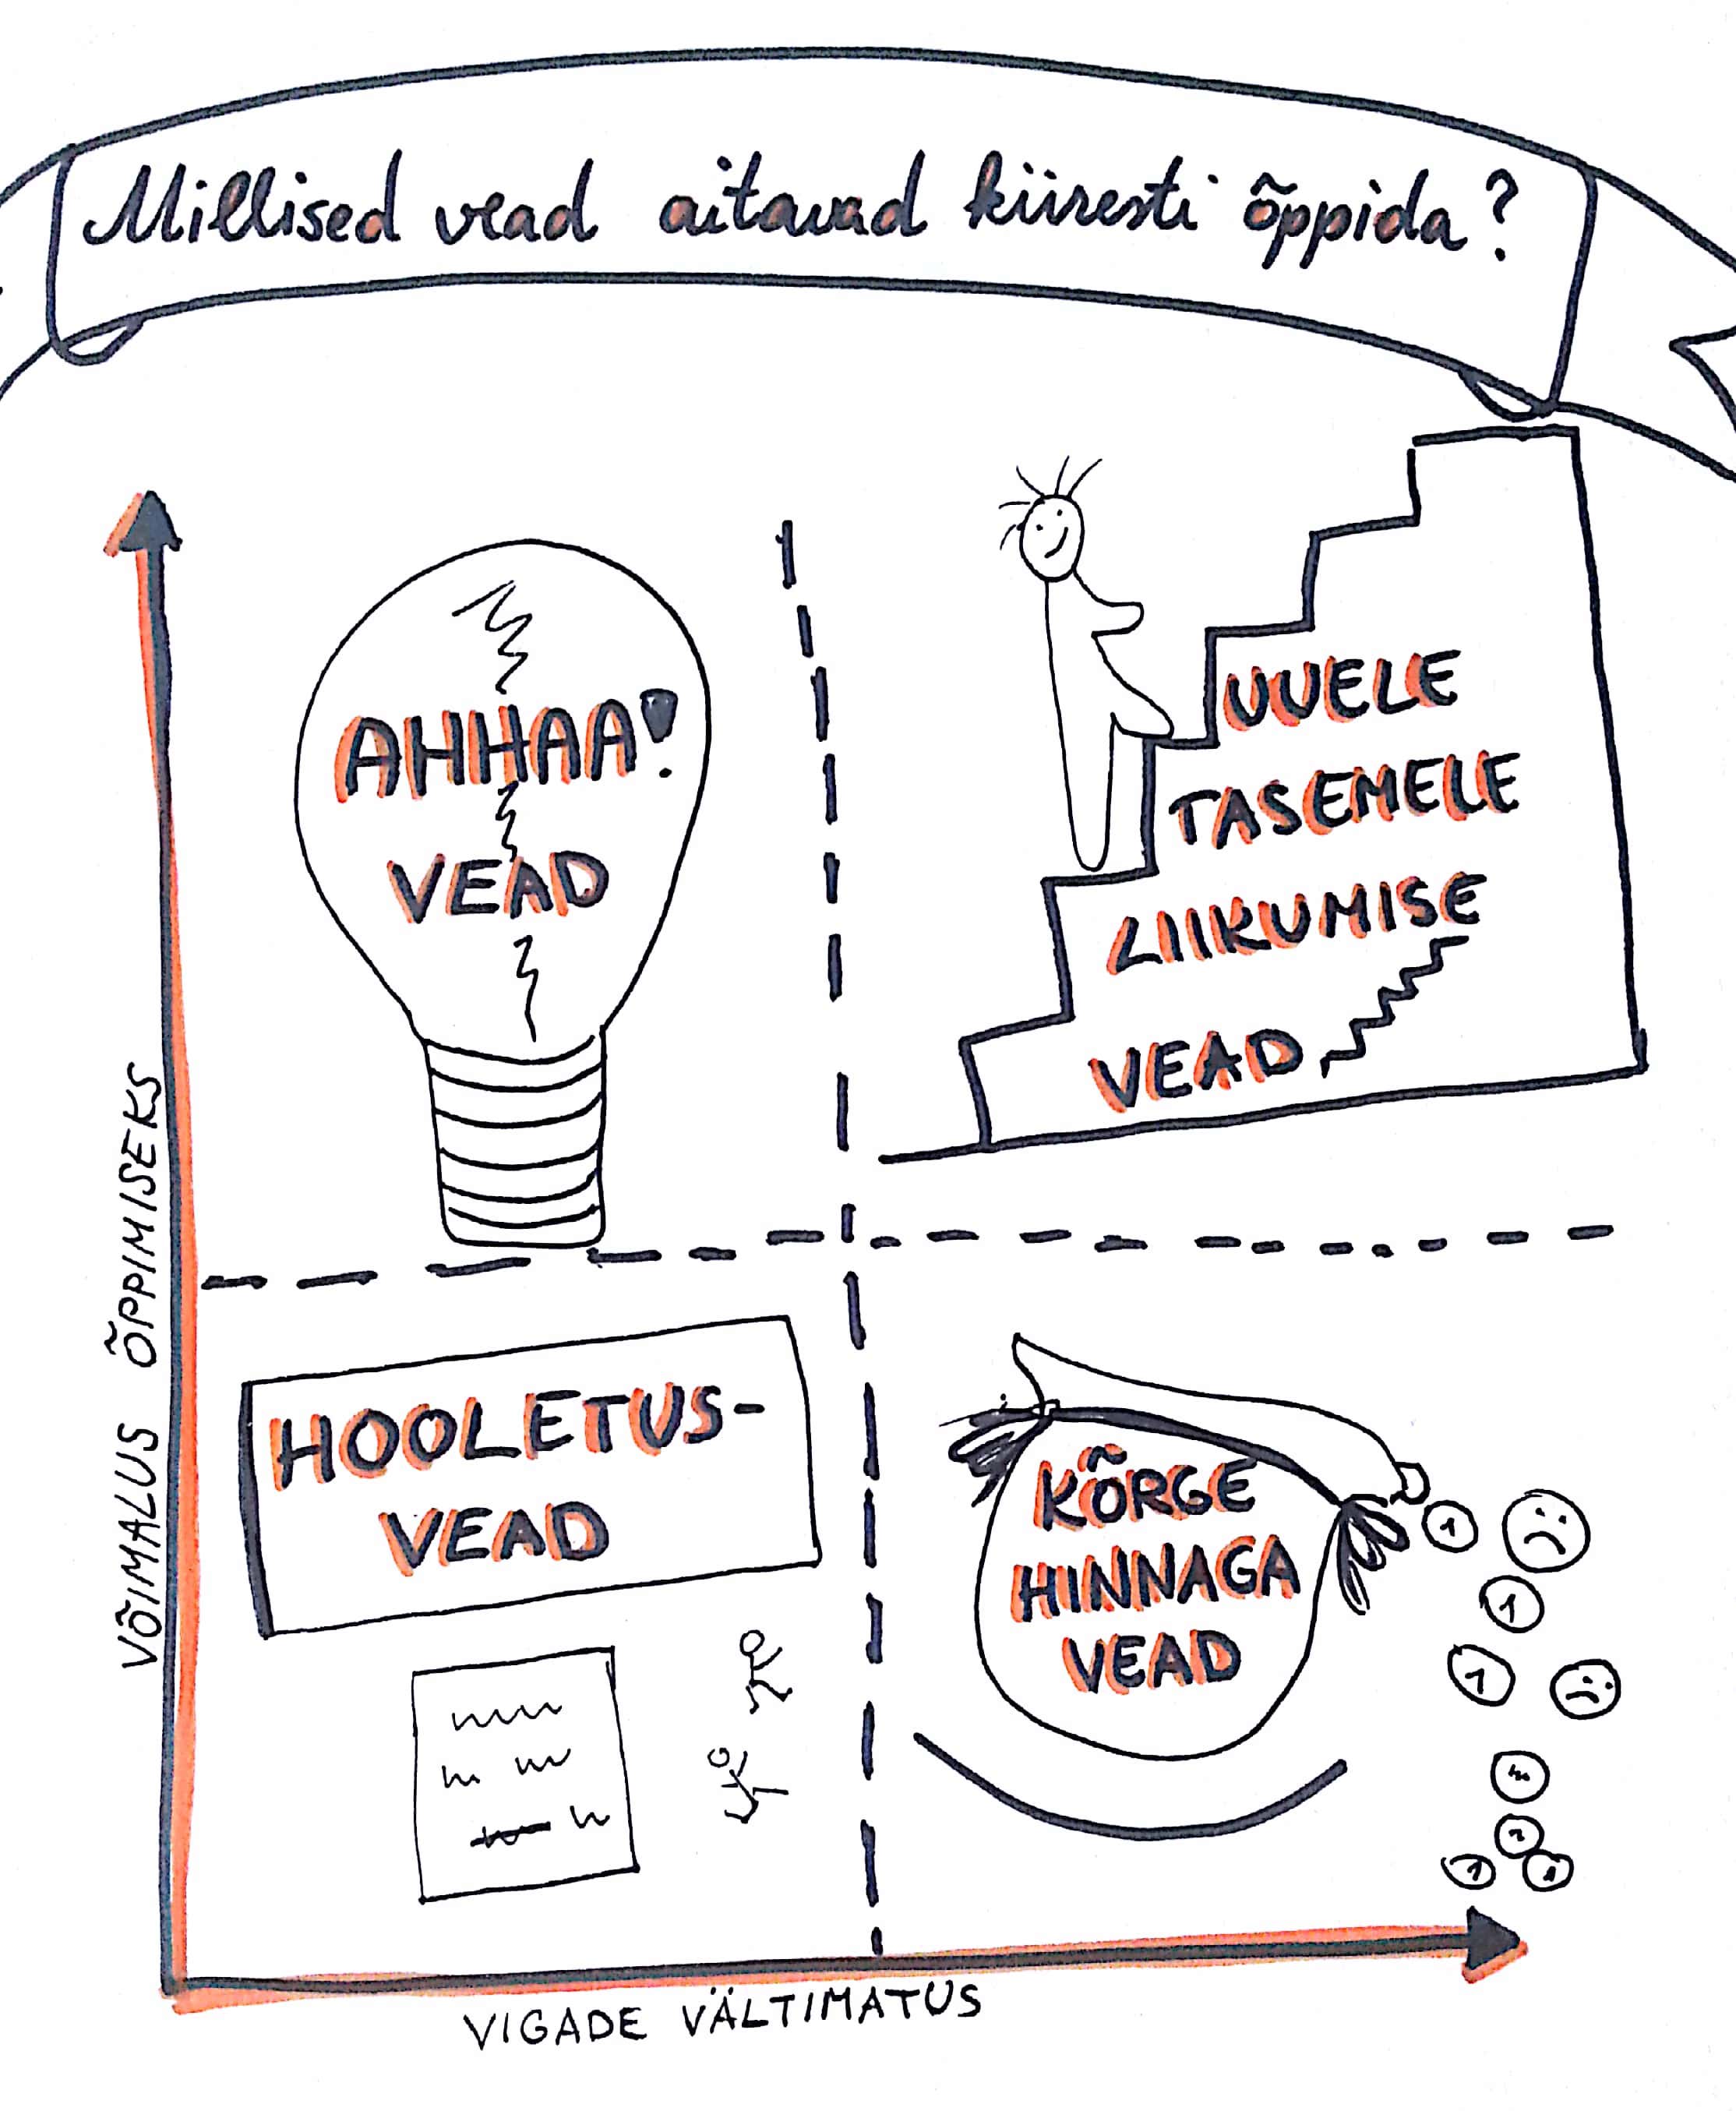 Millised vead aitavad kiiresti õppida?
AHHAA!
VEAD
UUELE
TASEMELE
LIIKUMISE
VEAD
VÕIMALUS ÕPPIMISEKS
HOOLETUS-
VEAD
KÕRGE
HINNAGA
VEAD
1
1
1
1
1
VIGADE VÄLTIMATUS